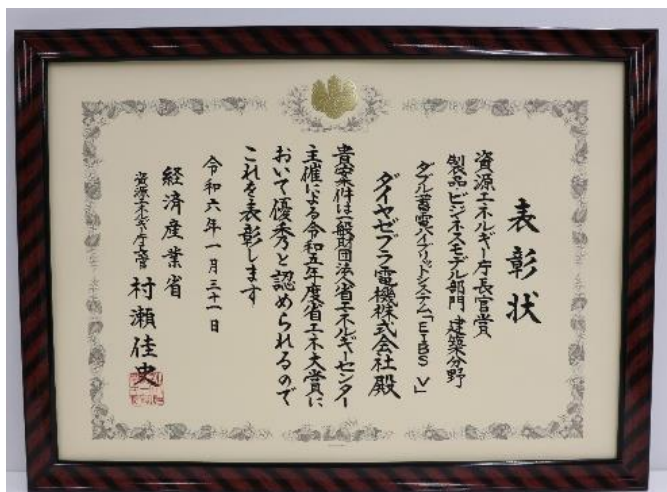 表彰状
資源エネルギー庁長官賞
製品・ビジネスモデル部門 建築分野
ダブル蓄電ハイブリッドシステム「EIBS V」
ダイヤゼブラ電機株式会社殿
貴案件は一般財団法人省エネルギーセンター
主催による令和五年度省エネ大賞に
おいて優秀と認められるので
これを表彰します
令和六年一月三十一日
経済産業省
資源エネルギー庁長官 村瀬佳史